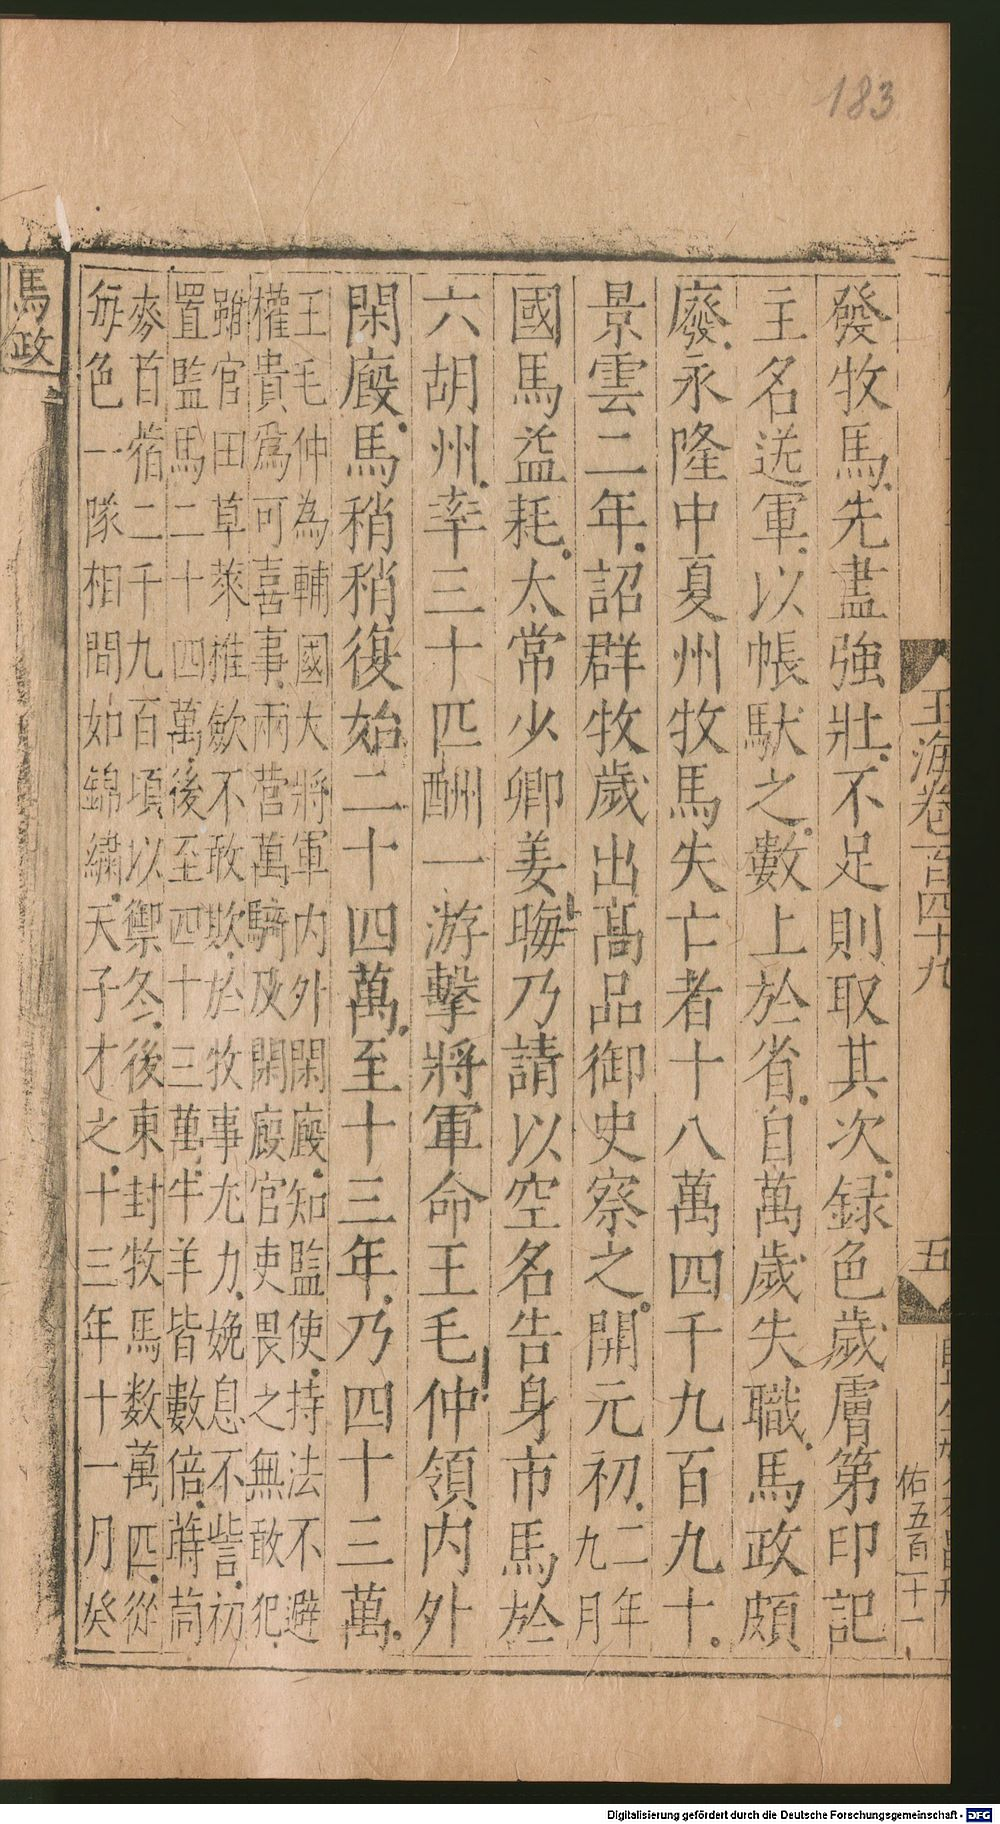 183
玉海卷百四十九
五
佑五百一十一
發牧馬先盡強壯不足則取其次録色歲膚第印記
主名送軍以帳馱之數上於省自萬歲失職馬政頗
廢永隆中夏州牧馬失亡者十八萬四千九百九十
景雲二年詔群牧歲出高品御史察之開元初二年九月
國馬益耗太常少卿姜晦乃請以空名告身市馬於
六胡州率三十匹酬一游擊將軍命王毛仲領内外
閑廄馬稍稍復始二十四萬至十三年乃四十三萬
王毛仲為輔國大將軍内外閑廄知監使持法不避
權貴爲可喜事兩營萬騎及閑廄官吏畏之無敢犯
雖官田草萊樵斂不敢欺於牧事尤力娩息不訾初
置監馬二十四萬後至四十三萬牛羊皆數倍蒔茼
麥苜蓿二千九百頃以禦冬後東封牧馬数萬匹從
每色一隊相間如錦繡天子才之十三年十一月癸
馬政
Digitalisierung gefördert durch die Deutsche Forschungsgemeinschaft - DFG